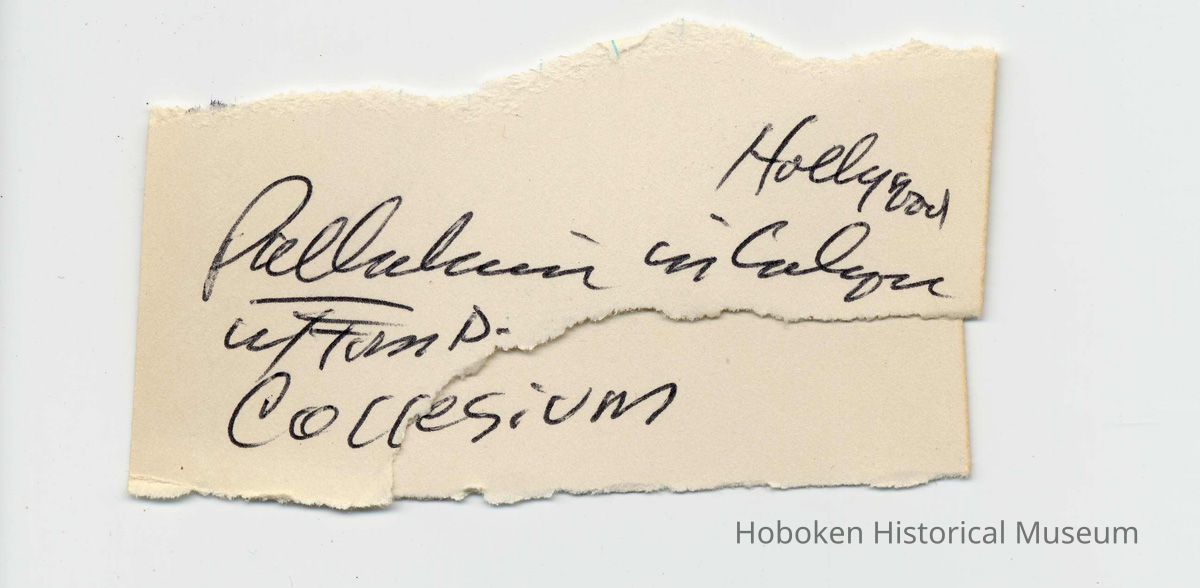 Hollywood
Palladium in Calif
w/Tom D.
Collesium
Hoboken Historical Museum